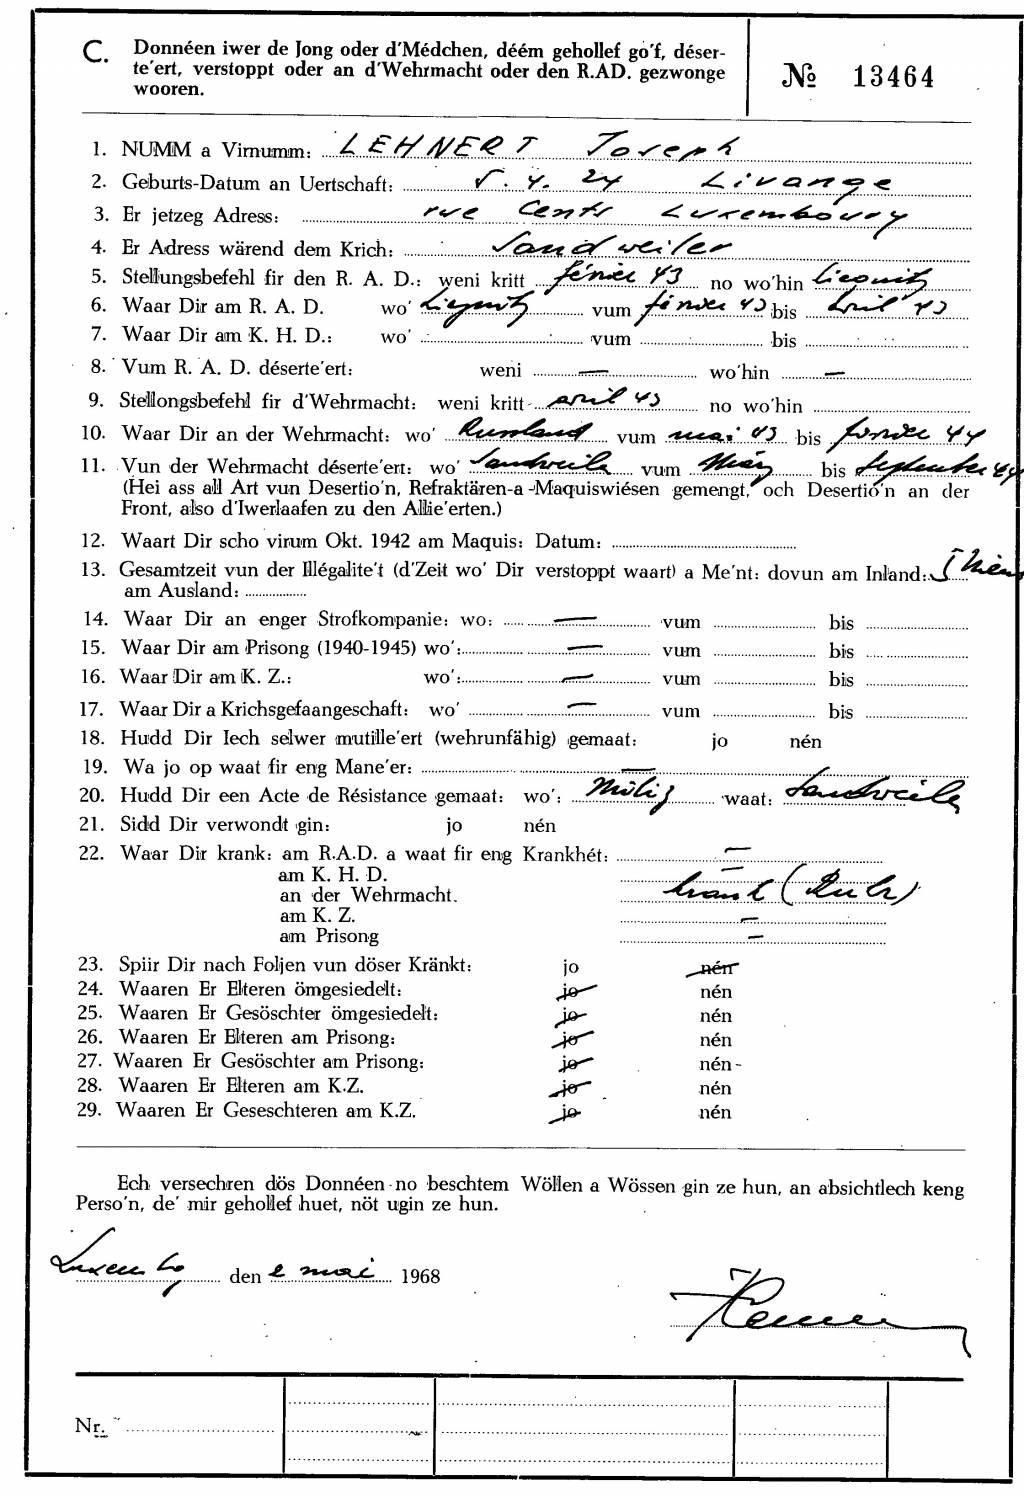 C. Donnéen iwer de Jong oder d'Médchen, déém gehollef go'f, déser-
te'ert, verstoppt oder an d'Wehrmacht oder den R.AD. gezwonge
wooren.
№ 13464
1. NUMM a Virnumm: LEHNERT Joseph
2. Geburts-Datum an Uertschaft: 5.4.24 Livange
3. Er jetzeg Adress: rue Cents Luxembourg
4. Er Adress wärend dem Krich: Sandweiler
5. Stellungsbefehl fir den R. A. D.: weni kritt février 43 no wo'hin Liegnitz
6. Waar Dir am R. A. D. wo' Liegnitz vum février 43 bis avril 43
7. Waar Dir am K. H. D.: wo' vum bis
8. Vum R. A. D. déserte'ert: weni — wo'hin —
9. Stellongsbefehl fir d'Wehrmacht: weni kritt avril 43 no wo'hin
10. Waar Dir an der Wehrmacht: wo' Russland vum mai 43 bis février 44
11. Vun der Wehrmacht déserte'ert: wo' Sandweiler vum März bis September 44
(Hei ass all Art vun Desertio'n, Refraktären-a-Maquiswiésen gemengt, och Desertio'n an der
Front, also d'Iwerlaafen zu den Allie'erten.)
12. Waart Dir scho virum Okt. 1942 am Maquis: Datum:
13. Gesamtzeit vun der Illégalite't (d'Zeit wo' Dir verstoppt waart) a Me'nt: dovun am Inland:
am Ausland:
14. Waar Dir an enger Strofkompanie: wo: — vum bis
15. Waar Dir am Prisong (1940-1945) wo': — vum bis
16. Waar Dir am K. Z.: wo': — vum bis
17. Waar Dir a Krichsgefaangeschaft: wo' — vum bis
18. Hudd Dir Iech selwer mutille'ert (wehrunfähig) gemaat: jo nén
19. Wa jo op waat fir eng Mane'er: —
20. Hudd Dir een Acte de Résistance gemaat: wo': Miliz waat: Sandweiler
21. Sidd Dir verwondt gin: jo nén
22. Waar Dir krank: am R.A.D. a waat fir eng Krankhét: —
am K. H. D. —
an der Wehrmacht. krank (Ruhr)
am K. Z. —
am Prisong —
23. Spiir Dir nach Foljen vun döser Kränkt: jo nén
24. Waaren Er Elteren ömgesiedelt: jo nén
25. Waaren Er Gesöschter ömgesiedelt: jo nén
26. Waaren Er Elteren am Prisong: jo nén
27. Waaren Er Gesöschter am Prisong: jo nén
28. Waaren Er Elteren am K.Z. jo nén
29. Waaren Er Geseschteren am K.Z. jo nén
Ech versechren dös Donnéen no beschtem Wöllen a Wössen gin ze hun, an absichtlech keng
Perso'n, de' mir gehollef huet, nöt ugin ze hun.
Luxembg den 2 mai 1968
Nr.